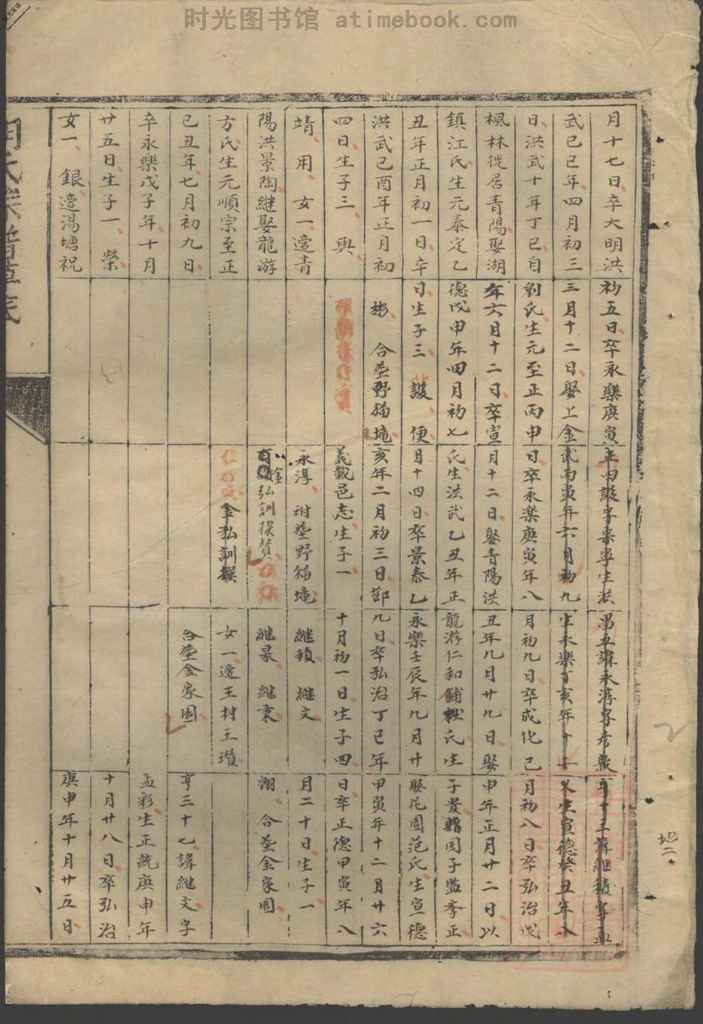 时光图书馆 atimebook.com
月十七日卒大明洪
武己巳年四月初三
日洪武十年丁巳自
楓林徙居青陽娶湖
鎮江氏生元泰定乙
丑年正月初一日卒
洪武己酉年正月初
四日生子三 輿
靖 用 女一適青
陽洪景陶繼娶龍游
方氏生元順宗至正
己丑年七月初九日
卒永樂戊子年十月
廿五日生子一 榮
女一 銀適湯塘祝
初五日卒永樂庚寅
三月十二日娶上金
劉氏生元至正丙申
年六月十二日卒宣
德戊申年四月初七
日生子三 皷 便
彬 合葬野貓塢
正四皷字樂寧生洪
武丙寅年六月初九
日卒永樂庚寅年八
月十二日娶青陽洪
氏生洪武乙丑年正
月十四日卒景泰乙
亥年二月初三日
義載邑志生子一
永淳 祔葬野貓塢
弘訓撰贊
金弘訓撰
昂五諱永淳字彥
生永樂丁亥年十
月初九日卒成化己
丑年九月廿九日娶
龍游仁和鋪 氏生
永樂壬辰年九月廿
九日卒弘治丁巳年
十月初一日生子四
繼積 繼文
繼最 繼秉
女一適王村王瓚
合葬金家園
亨十三諱繼積字
生宣德癸丑年八
月初八日卒弘治戊
申年正月廿二日以
子貴贈國子監學正
娶花園范氏生宣德
甲寅年十二月廿六
日卒正德甲寅年八
月二十日生子一
湖 合葬金家園
亨三十七諱繼文字
孟彩生正統庚申年
十月廿八日卒弘治
庚申年十月廿五日